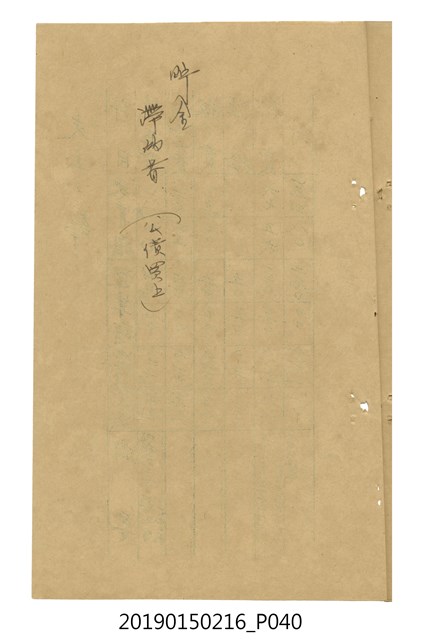 貯金
滯納者
(公債買上)
20190150216_P040